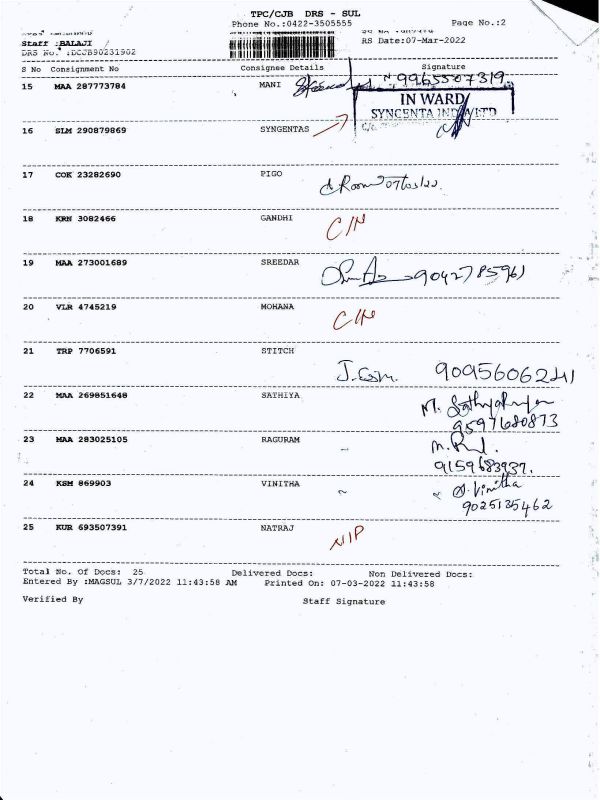 TPC/CJB DRS - SUL
Phone No.:0422-3505555 Page No.:2
Staff :BALAJI RS Date:07-Mar-2022
DRS No. :DCJB90231902
S No Consignment No Consignee Details Signature
15 MAA 287773784 MANI 9965507319
IN WARD
16 SLM 290879869 SYNGENTAS
17 COK 23282690 PIGO
18 KRN 3082466 GANDHI C/N
19 MAA 273001689 SREEDAR 9042785961
20 VLR 4745219 MOHANA C/N
21 TRP 7706591 STITCH
J. 9095606241
22 MAA 269851648 SATHIYA M.
9597680873
23 MAA 283025105 RAGURAM
9159683937.
24 KSM 869903 VINITHA Vinitha
9025135462
25 KUR 693507391 NATRAJ N/P
Total No. Of Docs: 25 Delivered Docs: Non Delivered Docs:
Entered By :MAGSUL 3/7/2022 11:43:58 AM Printed On: 07-03-2022 11:43:58
Verified By Staff Signature